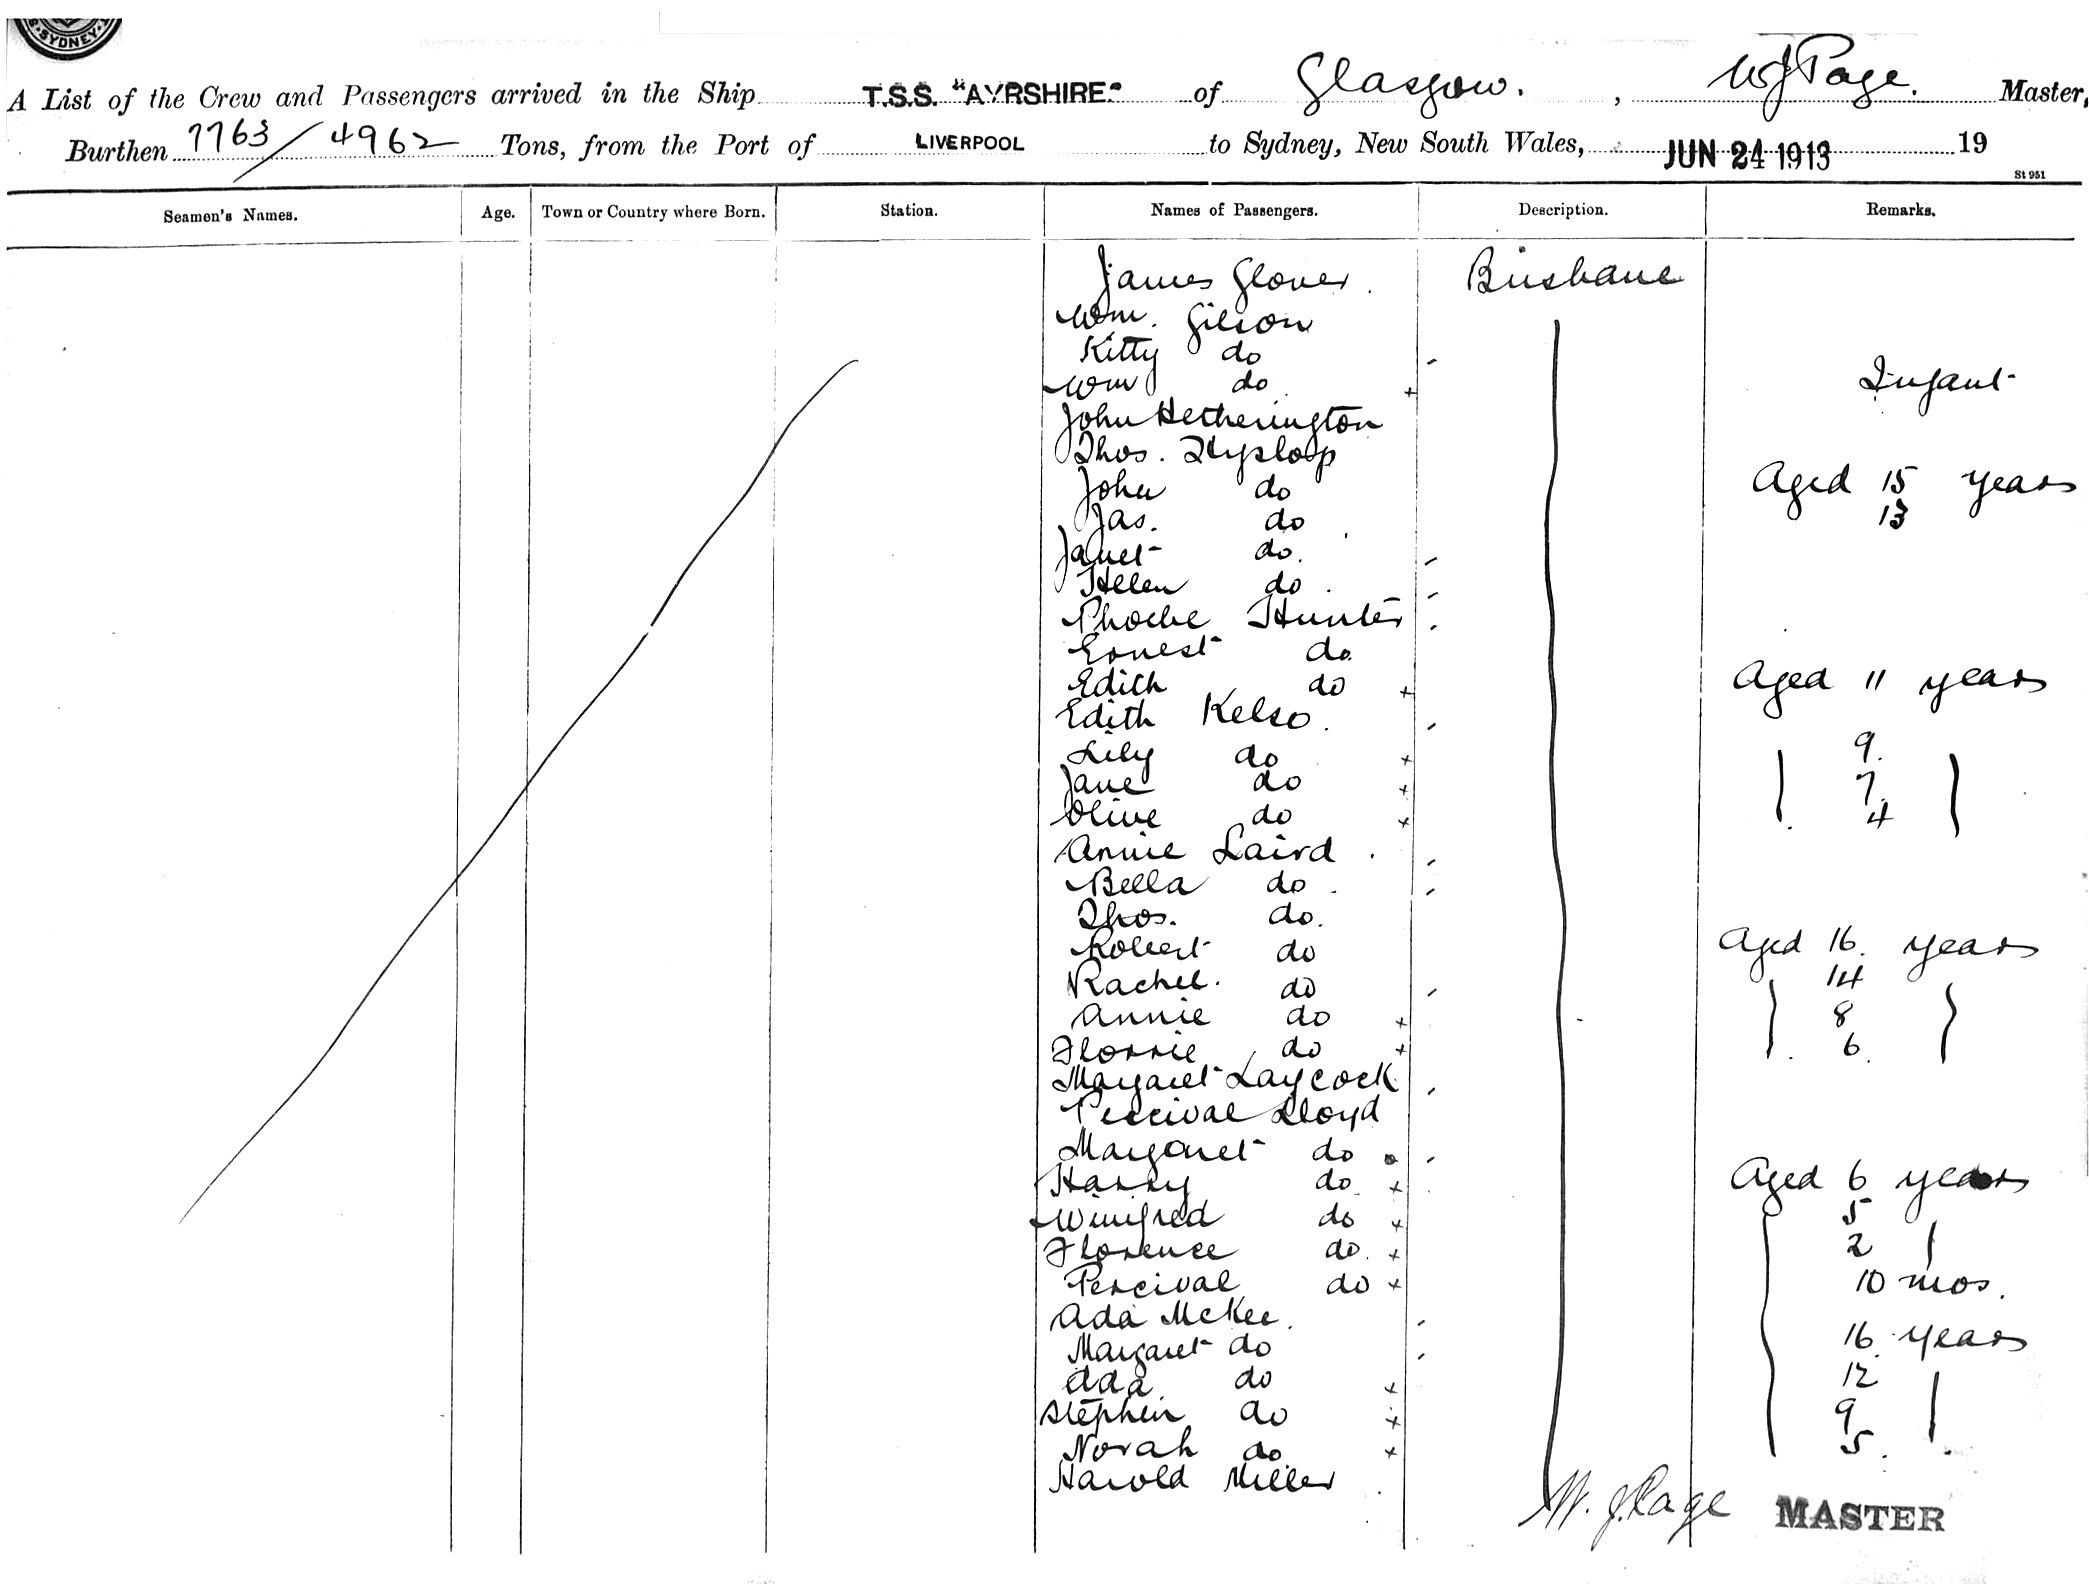 SYDNEY
A List of the Crew and Passengers arrived in the Ship T.S.S. "AYRSHIRE." of Glasgow. , W J Page. Master,
Burthen 7763/4962 Tons, from the Port of LIVERPOOL to Sydney, New South Wales, JUN 24 1913 19
St 951
Seamen's Names. Age. Town or Country where Born. Station. Names of Passengers. Description. Remarks.
James Glover. Brisbane
Wm. Gilson
Kitty do
Wm do + Infant
John Hetherington
Thos. Hyslop
John do Aged 15 years
Jas. do 13
Janet do.
Helen do.
Phoebe Hunter
Ernest do.
Edith do + Aged 11 years
Edith Kelso.
Lily do + 9.
Jane do + 7.
Olive do + 4
Annie Laird.
Bella do.
Thos. do.
Robert do Aged 16. years
Rachel. do 14
Annie do + 8
Florrie do + 6.
Margaret Laycock
Percival Lloyd
Margaret do
Harry do + Aged 6 years
Winifred do + 5
Florence do. + 2
Percival do + 10 mos.
Ada McKee.
Margaret do 16 years
Ada. do + 12
Stephen do + 9
Norah do + 5.
Harold Miller
W. J. Page MASTER